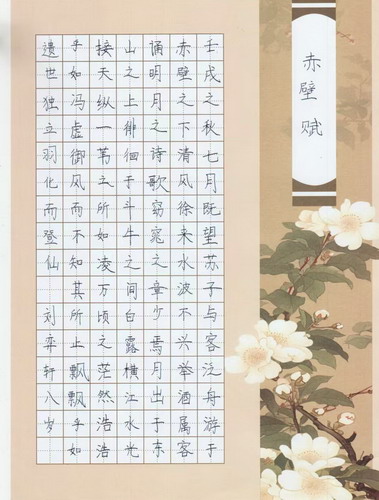 赤壁赋
壬戌之秋七月既望苏子与客泛舟游于
赤壁之下清风徐来水波不兴举酒属客
诵明月之诗歌窈窕之章少焉月出于东
山之上徘徊于斗牛之间白露横江水光
接天纵一苇之所如凌万顷之茫然浩浩
乎如冯虚御风而不知其所止飘飘乎如
遗世独立羽化而登仙 刘弈轩八岁